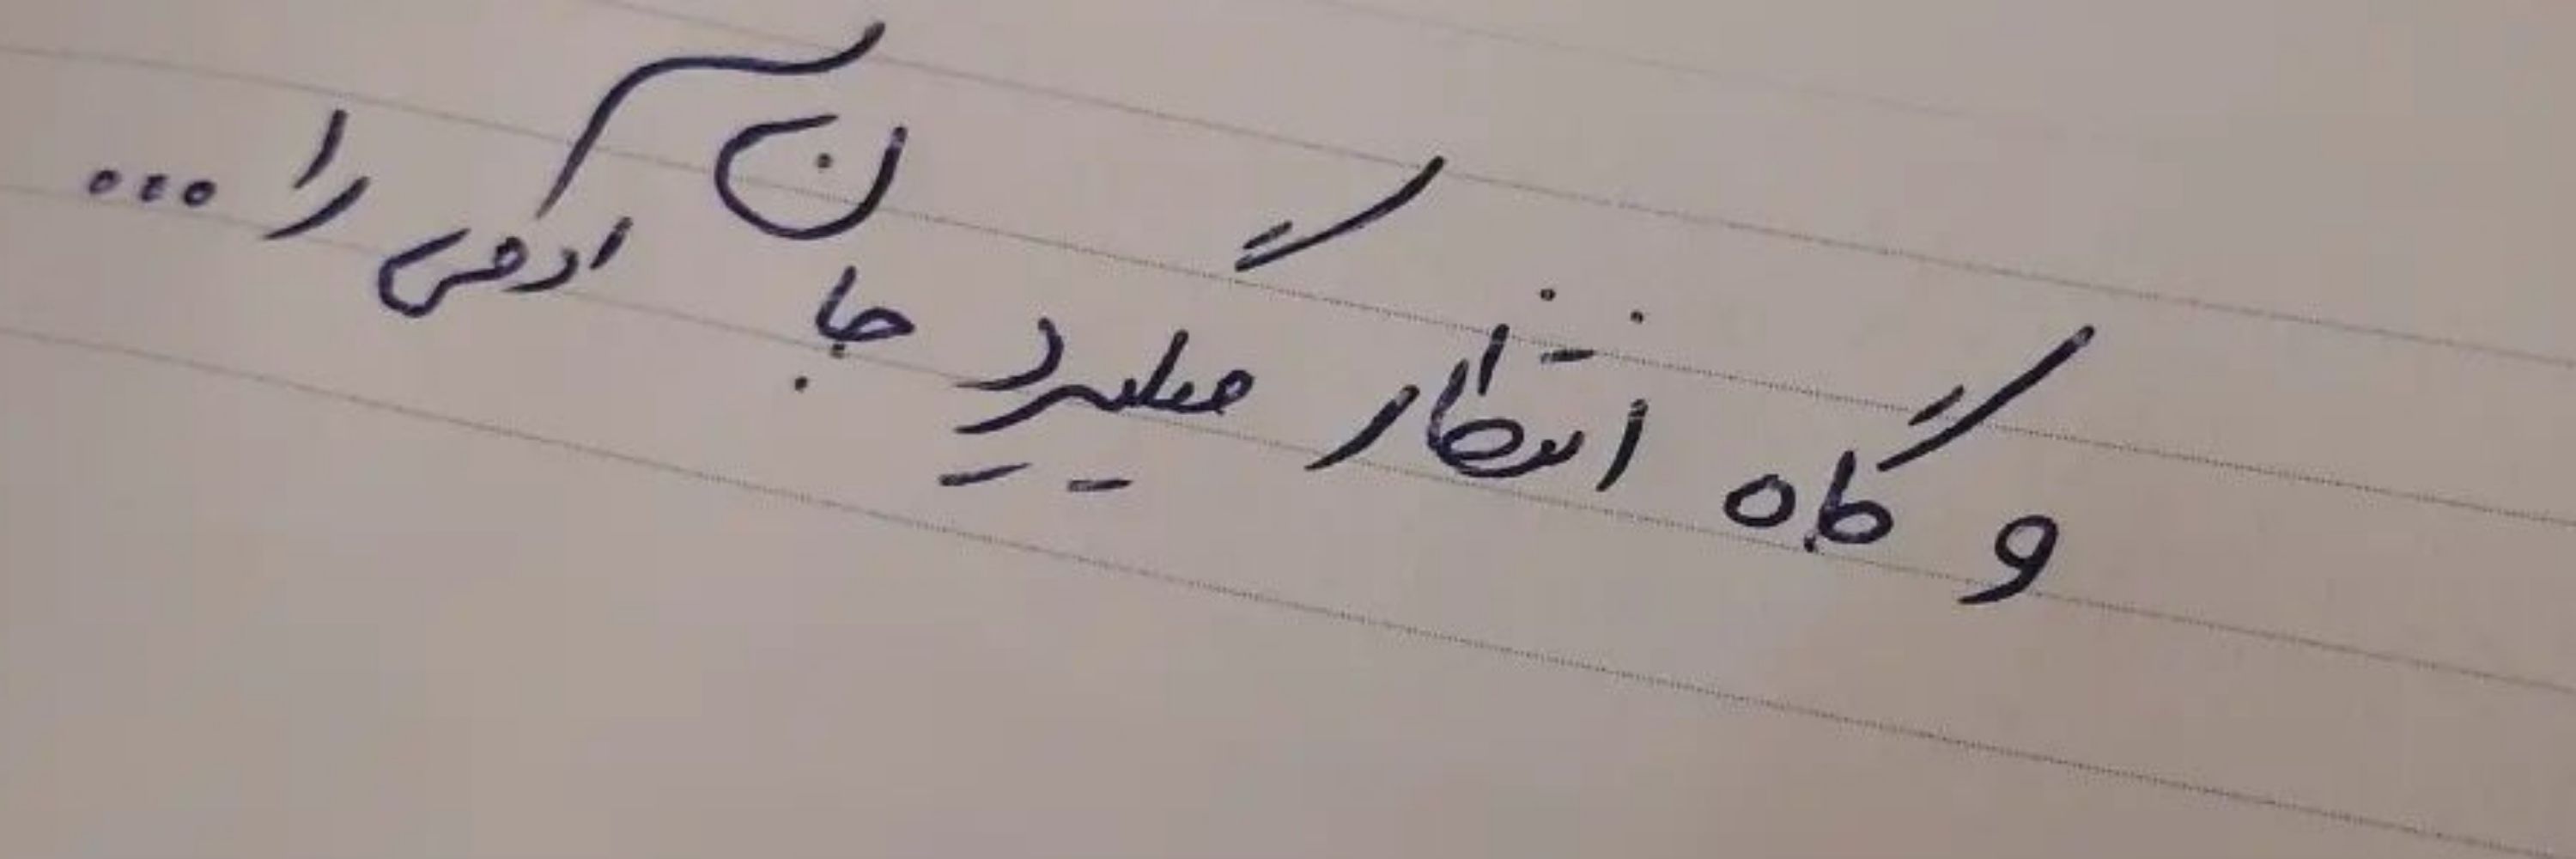 و گاه انتظار میگیرد جان آدمی را...